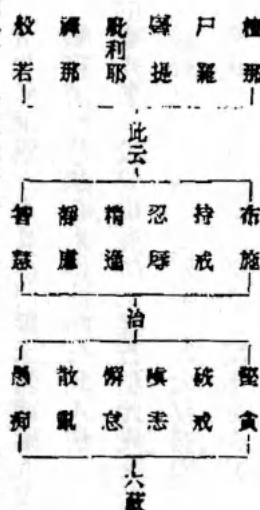 檀那
尸羅
羼提
毗利耶
禪那
般若
此云
布施
持戒
忍辱
精進
靜慮
智慧
治
慳貪
破戒
瞋恚
懈怠
散亂
愚痴
六蔽